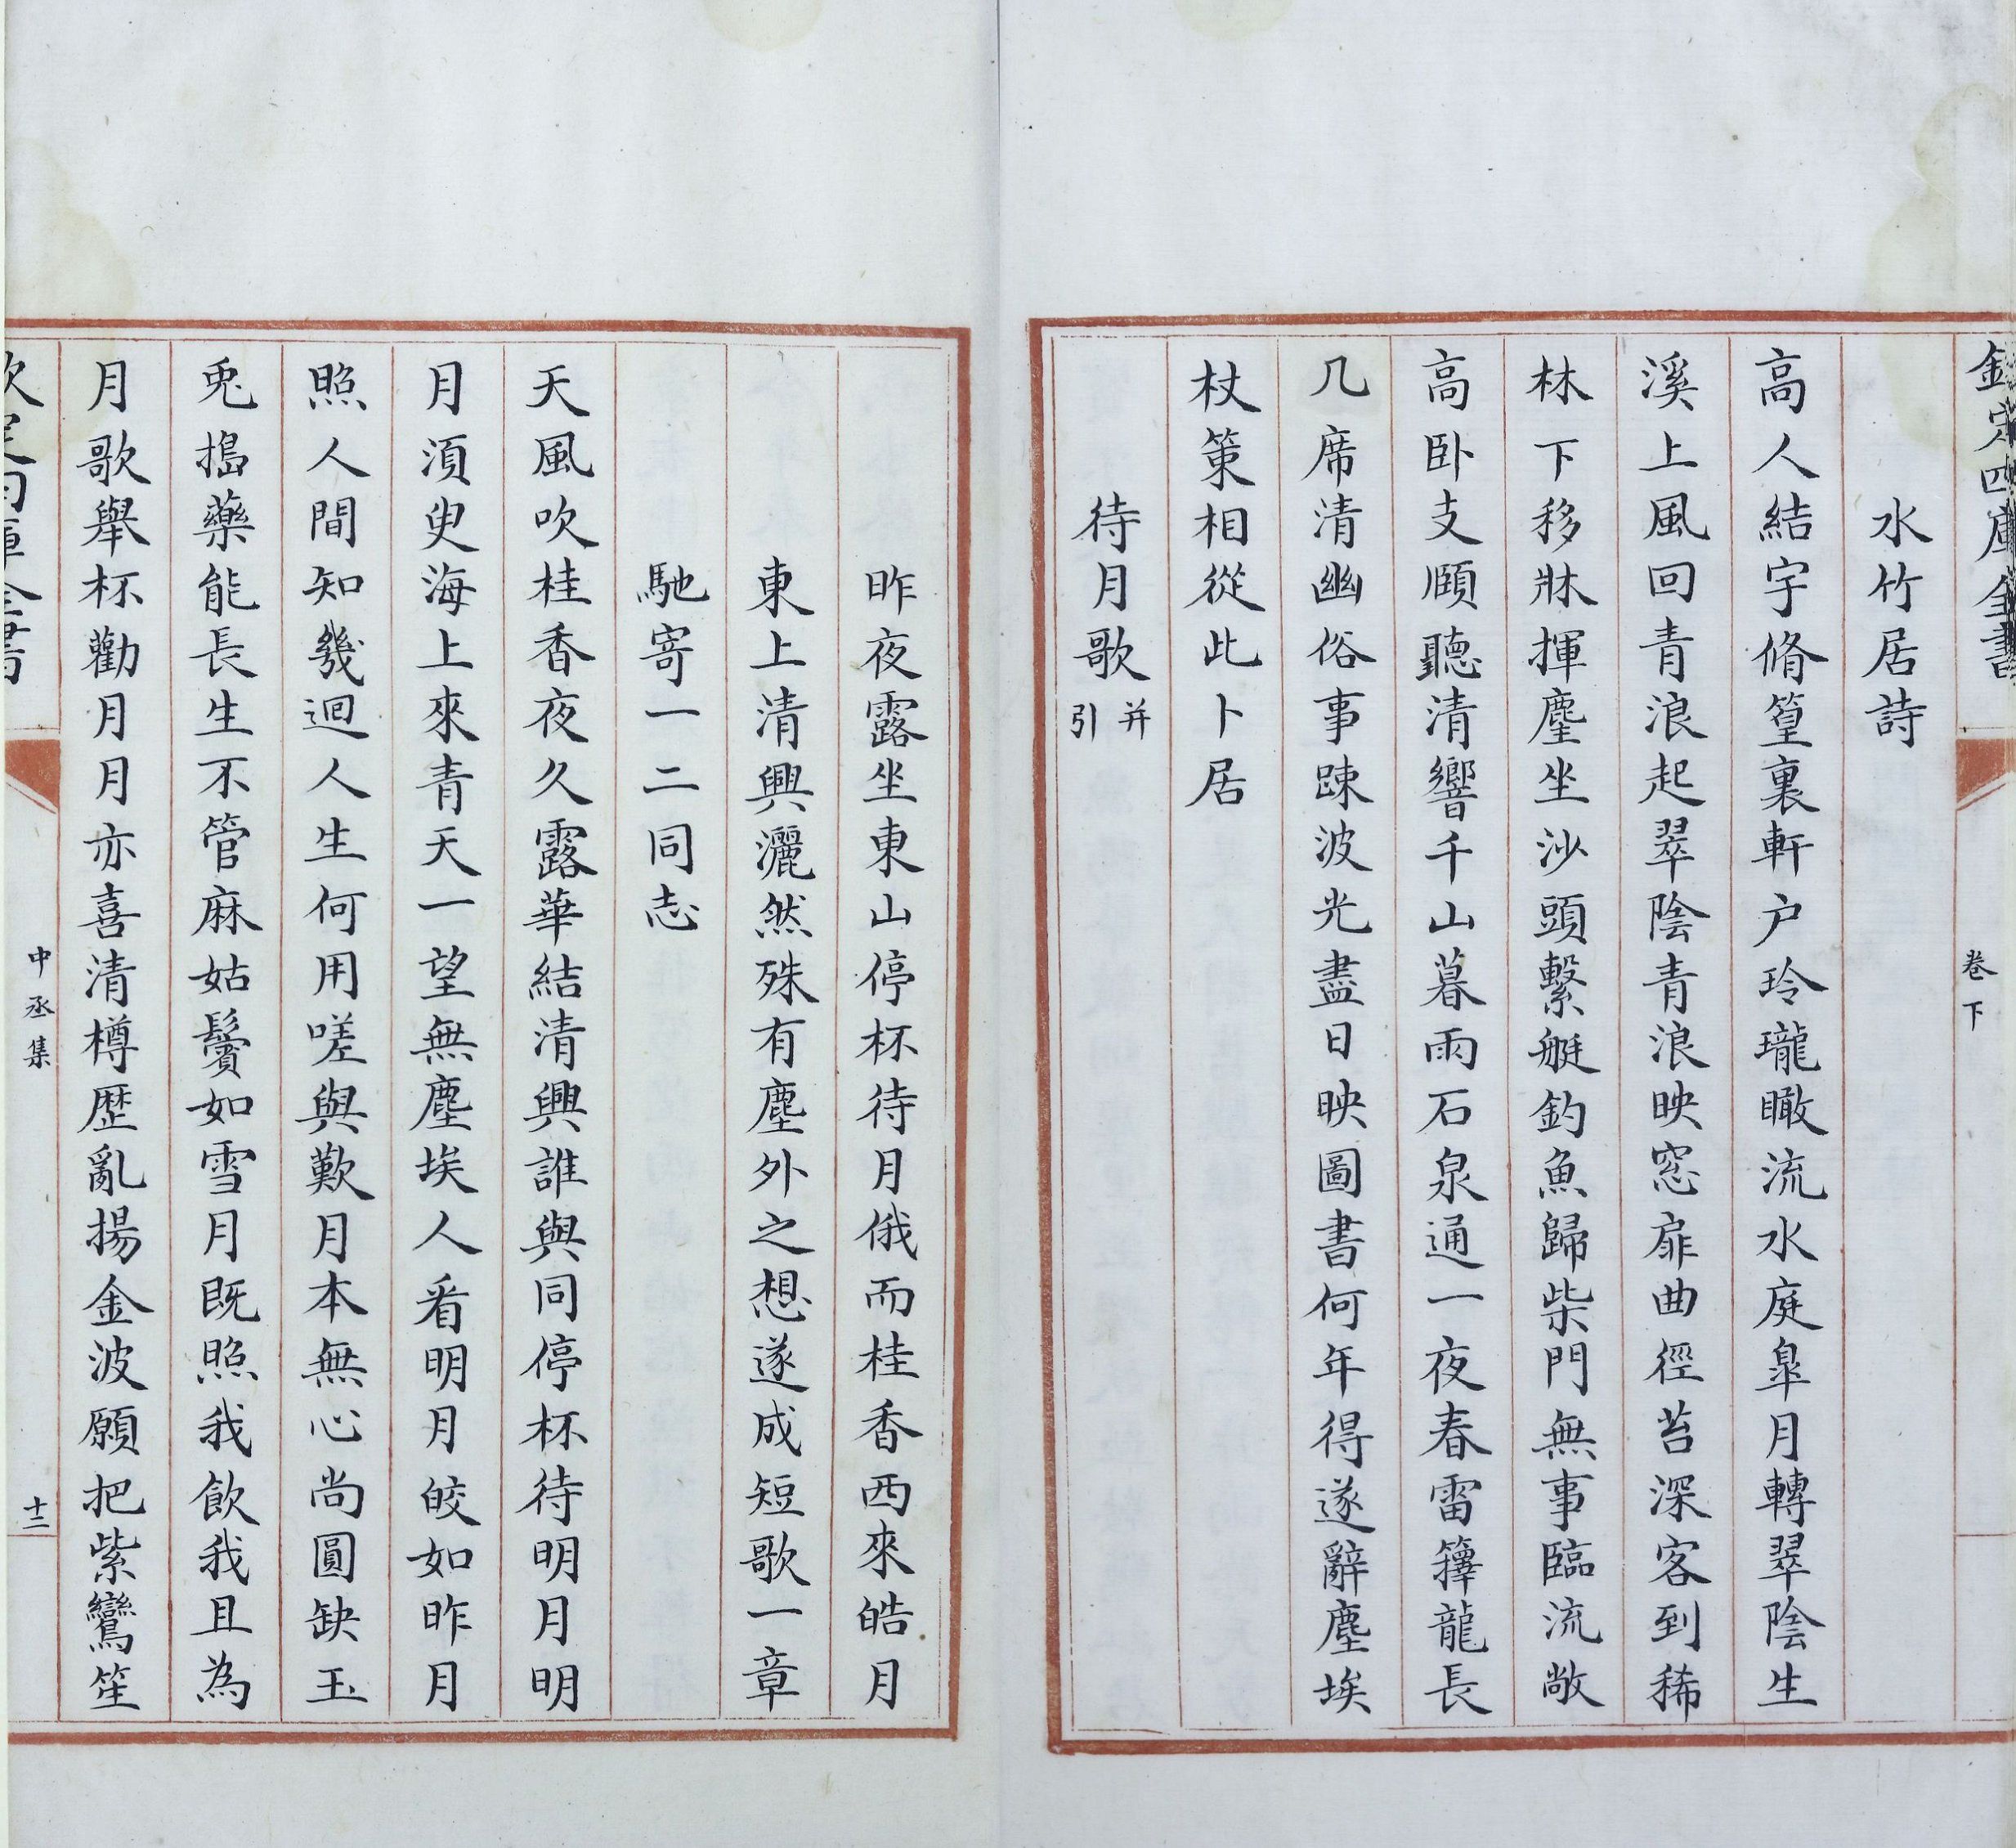 欽定四庫全書
卷下
水竹居詩
高人結宇脩篁裏軒户玲瓏瞰流水庭臯月轉翠陰生
溪上風回青浪起翠陰青浪映窓扉曲徑苔深客到稀
林下移牀揮麈坐沙頭繫艇釣魚歸柴門無事臨流敞
高卧支頤聽清響千山暮雨石泉通一夜春雷籜龍長
几席清幽俗事踈波光盡日映圖書何年得遂辭塵埃
杖策相從此卜居
待月歌并引
昨夜露坐東山停杯待月俄而桂香西來皓月
東上清興灑然殊有塵外之想遂成短歌一章
馳寄一二同志
天風吹桂香夜久露華結清興誰與同停杯待明月明
月湏臾海上來青天一望無塵埃人看明月皎如昨月
照人間知幾迴人生何用嗟與歎月本無心尚圓缺玉
兎搗藥能長生不管麻姑鬢如雪月既照我飲我且為
月歌舉杯勸月月亦喜清樽歴亂揚金波願把紫鸞笙
欽定四庫全書
中丞集
十二